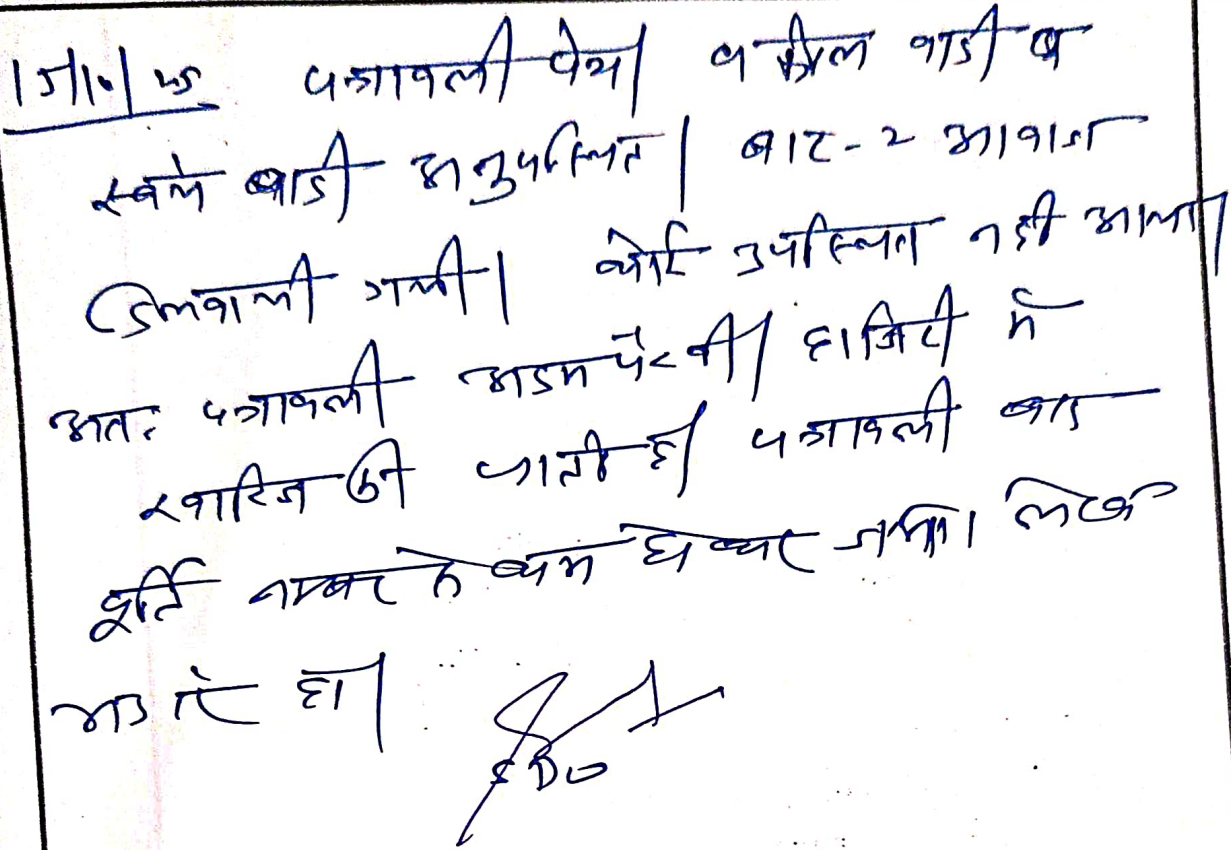 15/10/25 पत्रावली पेश। वकील वादी व
स्वयं वादी अनुपस्थित। बार-२ आवाज
दिलवायी गयी। कोई उपस्थित नहीं आया।
अतः पत्रावली अदम पैरवी/हाजिरी में
खारिज की जाती है। पत्रावली बाद
पूर्ति नम्बर से कम होकर जमा
हो।
SDO